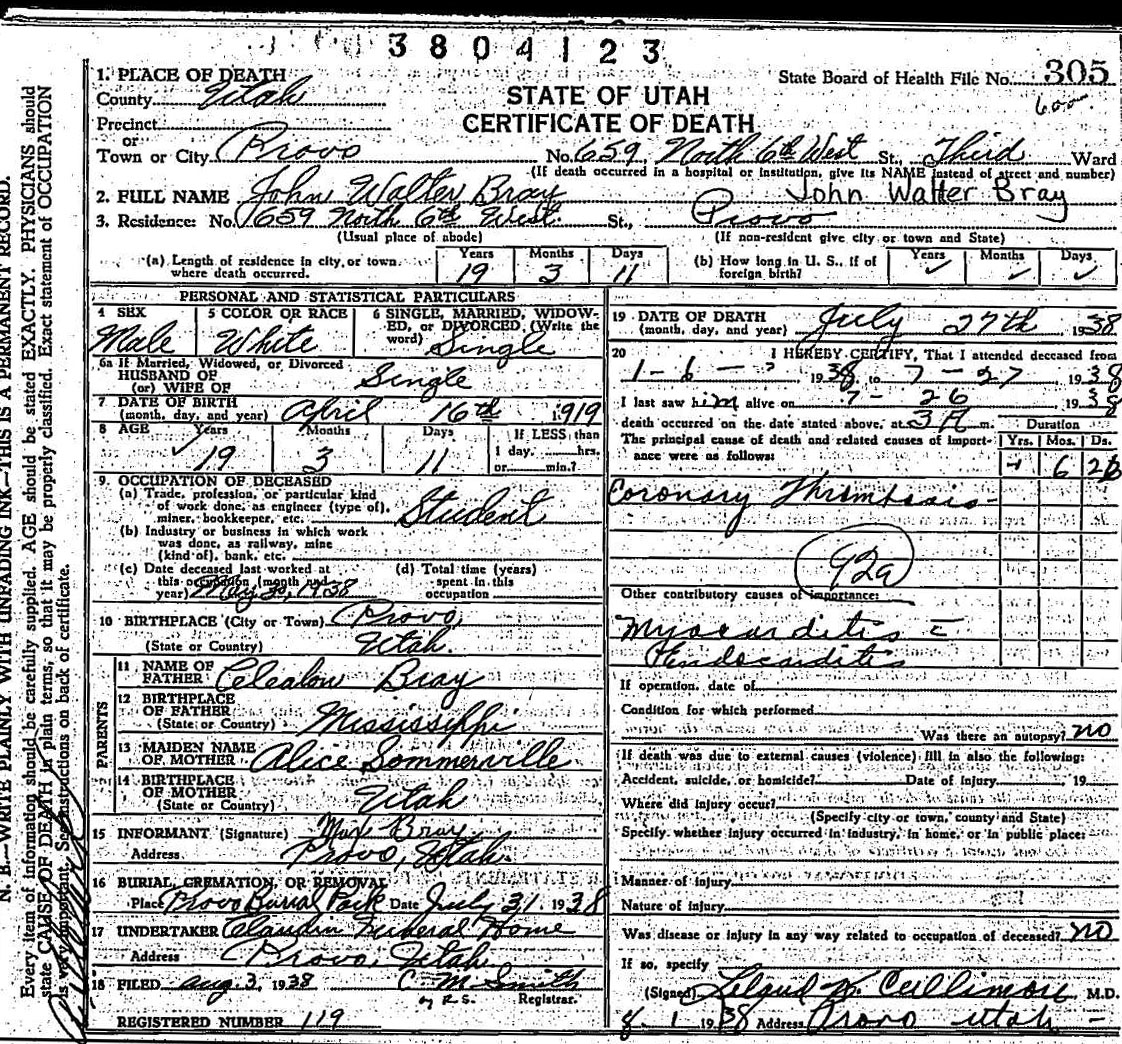 3804123
State Board of Health File No. 305
STATE OF UTAH
CERTIFICATE OF DEATH
1. PLACE OF DEATH
County Utah
Precinct
or
Town or City Provo No. 659 North 6th West St., Third Ward
(If death occurred in a hospital or institution, give its NAME instead of street and number)
2. FULL NAME John Walter Bray John Walter Bray
3. Residence: No. 659 North 6th West St., Provo
(Usual place of abode) (If non-resident give city or town and State)
(a) Length of residence in city or town where death occurred. Years 19 Months 3 Days 11 (b) How long in U. S., if of foreign birth? Years Months Days
PERSONAL AND STATISTICAL PARTICULARS
4 SEX Male
5 COLOR OR RACE White
6 SINGLE, MARRIED, WIDOWED, or DIVORCED (Write the word) Single
6a If Married, Widowed, or Divorced
HUSBAND OF
(or) WIFE OF Single
7 DATE OF BIRTH
(month, day, and year) April 16th 1919
8 AGE Years 19 Months 3 Days 11 If LESS than 1 day, hrs. or min.?
9. OCCUPATION OF DECEASED
(a) Trade, profession, or particular kind of work done, as engineer (type of), miner, bookkeeper, etc. Student
(b) Industry or business in which work was done, as railway, mine (kind of), bank, etc.
(c) Date deceased last worked at this occupation (month and year) May 1938
(d) Total time (years) spent in this occupation
10 BIRTHPLACE (City or Town) Provo,
(State or Country) Utah.
PARENTS
11 NAME OF FATHER Bray
12 BIRTHPLACE OF FATHER
(State or Country) Mississippi
13 MAIDEN NAME OF MOTHER Alice Sommerville
14 BIRTHPLACE OF MOTHER
(State or Country) Utah
15 INFORMANT (Signature) Bray
Address Provo, Utah.
16 BURIAL, CREMATION, OR REMOVAL
Place Provo Burial Park Date July 31 1938
17 UNDERTAKER Claudin Funeral Home
Address Provo, Utah
18 FILED Aug. 3, 1938 C. M. Smith
Registrar.
REGISTERED NUMBER 119
19 DATE OF DEATH
(month, day, and year) July 27th 1938
20 I HEREBY CERTIFY, That I attended deceased from
1-6- 1938 to 7-27 1938
I last saw him alive on 7-26 1938
death occurred on the date stated above, at 3 A m. Duration
The principal cause of death and related causes of importance were as follows: Yrs. Mos. Ds.
6
Coronary Thrombosis
92a
Other contributory causes of importance:
Myocarditis
Endocarditis
If operation, date of
Condition for which performed
Was there an autopsy? no
If death was due to external causes (violence) fill in also the following:
Accident, suicide, or homicide? Date of injury 19
Where did injury occur?
(Specify city or town, county and State)
Specify whether injury occurred in industry, in home, or in public place:
Manner of injury
Nature of injury
Was disease or injury in any way related to occupation of deceased? no
If so, specify
(Signed) Leland K. Cullimore M.D.
8-1 1938 Address Provo Utah
N. B.—WRITE PLAINLY WITH UNFADING INK—THIS IS A PERMANENT RECORD.
Every item of information should be carefully supplied. AGE should be stated EXACTLY. PHYSICIANS should
state CAUSE OF DEATH in plain terms, so that it may be properly classified. Exact statement of OCCUPATION
is very important. See instructions on back of certificate.